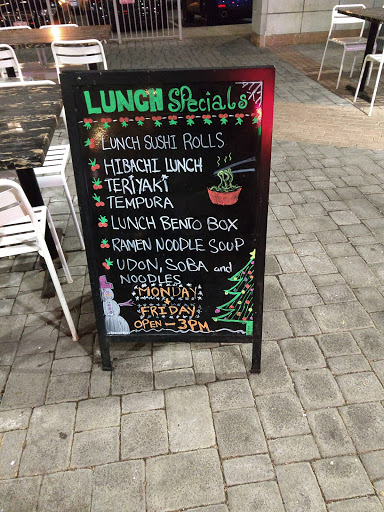 LUNCH SPecials
LUNCH SUSHI ROLLS
HIBACHI LUNCH
TERIYAKI
TEMPURA
LUNCH BENTO BOX
RAMEN NOODLE SOUP
UDON, SOBA and
NOODLES
MONDAY
FRIDAY
OPEN - 3PM